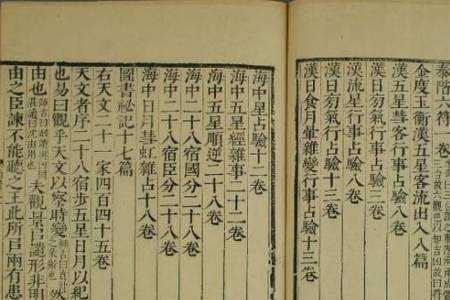 泰階六符一卷
金度玉衡漢五星客流出入八篇
漢五星彗客行事占驗八卷
漢日旁氣行事占驗三卷
漢流星行事占驗八卷
漢日旁氣行占驗十三卷
漢日食月暈雜變行事占驗十三卷
海中星占驗十二卷
海中五星經雜事二十二卷
海中五星順逆二十八卷
海中二十八宿國分二十八卷
海中二十八宿臣分二十八卷
海中日月彗虹雜占十八卷
圖書祕記十七篇
右天文二十一家四百四十五卷
天文者序二十八宿步五星日月以紀
也易曰觀乎天文以察時變
由也夫觀景㠯譴形非明
由之臣諫不能聽之王此所㠯兩有患